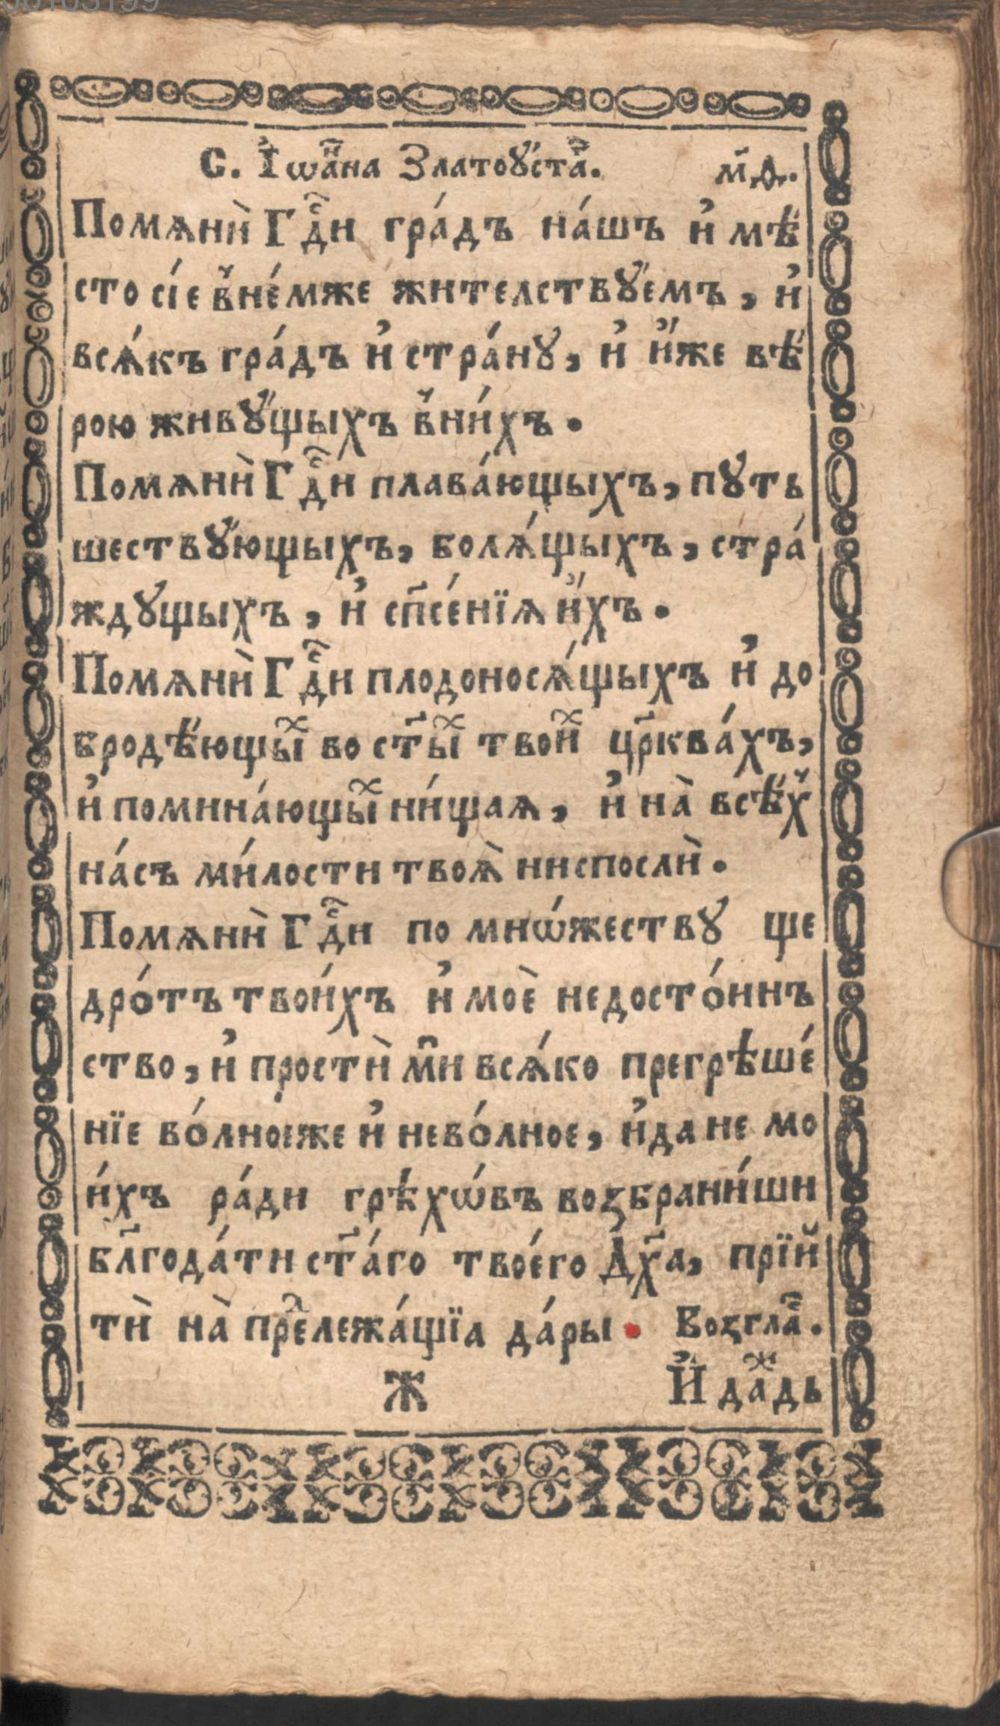 00103199
С. І҆ѡа҆́на Златоу́ста. м҃д.
Помѧнѝ Гдⷭ҇и гра́дъ на́шъ и҆ мѣ́
сто сїе в̾не́мже жителствꙋ́емъ, и҆
всѧ́къ гра́дъ и҆ стра́нꙋ, и҆ и҆́же вѣ́
рою живꙋ́щыхъ в̾ни́хъ.
Помѧнѝ Гдⷭ҇и плава́ющыхъ, пꙋть
шествꙋ́ющыхъ, болѧ́щыхъ, стра́
ждꙋщыхъ, и҆ сп҃се́нїѧ и҆́хъ.
Помѧнѝ Гдⷭ҇и плодоносѧ́щыхъ и҆ до
бродѣ́ющыⷯ во ст҃ыⷯ твоиⷯ цр҃ква́хъ,
и҆ помина́ющыⷯ ни́щаѧ, и҆ на̀ всѣ́х̾
на́съ ми́лости твоѧ̀ ниспослѝ.
Помѧнѝ Гдⷭ҇и по мнѡ́жествꙋ ще
дро́тъ твои́хъ и҆ моѐ недосто́инъ
ство, и҆ простѝ мⷩ҇и всѧ́ко прегрѣше́
нїе во́лноеже и҆ нево́лное, и҆да не мо
и́хъ ра́ди грѣхѡ́въ воꙁбрани́ши
бл҃года́ти ст҃а́го твоего̀ Дх҃а, прїй
тѝ на̀ преⷣлежа́щїа да́ры. Воꙁглаⷭ҇.
Ж И҆ даⷤдь